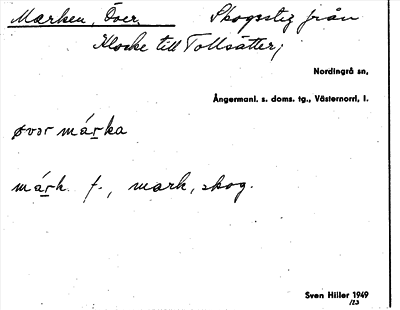 Marken, Över    Skogsstig från
Klocke till Tollsätter;
Nordingrå sn,
Ångermanl. s. doms. tg., Västernorrl. l.
øvər márka
márk f., mark, skog.
Sven Hiller 1949
/23